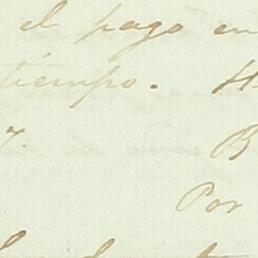 el pago en
tiempo. H
7. B
Por